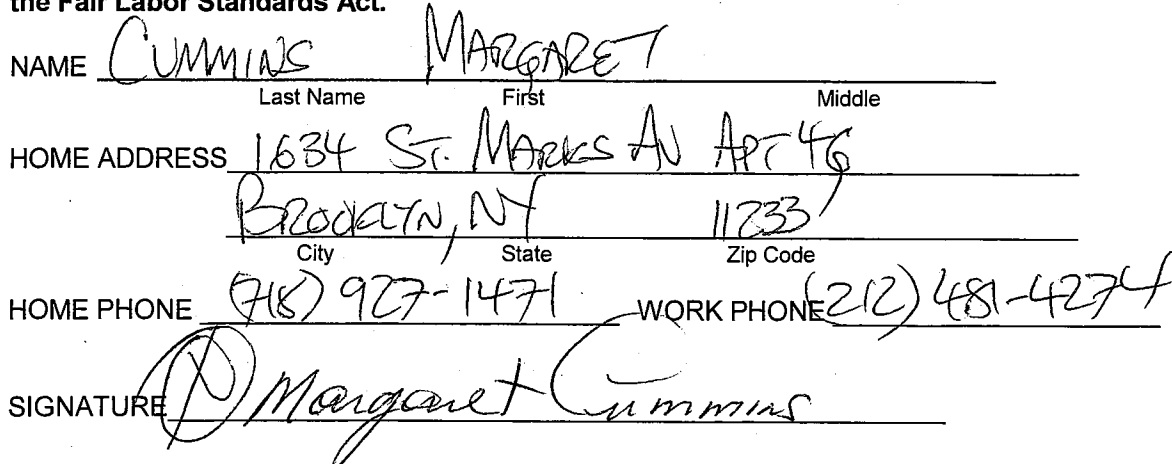 the Fair Labor Standards Act.
NAME CUMMINS MARGARET
Last Name First Middle
HOME ADDRESS 1634 ST. MARKS AV APT 4G
BROOKLYN, NY 11233
City State Zip Code
HOME PHONE (718) 927-1471 WORK PHONE (212) 481-4274
SIGNATURE X Margaret Cummins